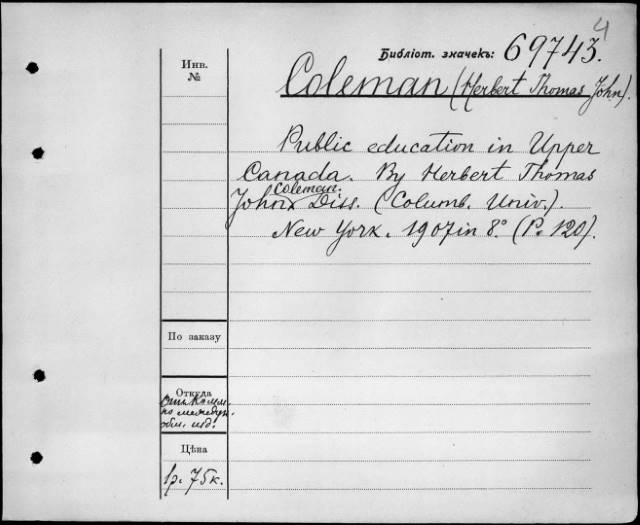 4
Библіот. значекъ: 69743.
Инв.
№
Coleman (Herbert Thomas John).
Public education in Upper
Canada. By Herbert Thomas
Coleman.
John Diss. (Columb. Univ.).
New York. 1907 in 8° (P. 120).
По заказу
Откуда
Отъ Колум.
по междун.
обм. изд.
Цѣна
1р. 75к.